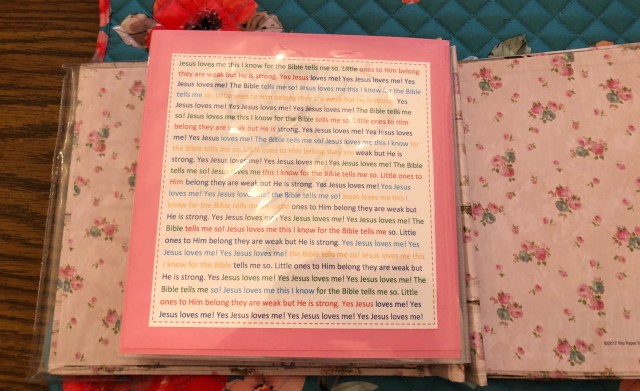 Jesus loves me this I know for the Bible tells me so. Little ones to Him belong
they are weak but He is strong. Yes Jesus loves me! Yes Jesus loves me! Yes
Jesus loves me! The Bible tells me so! Jesus loves me this I know for the Bible
tells me so. Little ones to Him belong they are weak but He is strong. Yes
Jesus loves me! Yes Jesus loves me! Yes Jesus loves me! The Bible tells me
so! Jesus loves me this I know for the Bible tells me so. Little ones to Him
belong they are weak but He is strong. Yes Jesus loves me! Yes Jesus loves
me! Yes Jesus loves me! The Bible tells me so! Jesus loves me this I know for
the Bible tells me so. Little ones to Him belong they are weak but He is
strong. Yes Jesus loves me! Yes Jesus loves me! Yes Jesus loves me! The Bible
tells me so! Jesus loves me this I know for the Bible tells me so. Little ones to
Him belong they are weak but He is strong. Yes Jesus loves me! Yes Jesus
loves me! Yes Jesus loves me! the Bible tells me so! Jesus loves me this I
know for the Bible tells me so. Little ones to Him belong they are weak but
He is strong. Yes Jesus loves me! Yes Jesus loves me! Yes Jesus loves me! The
Bible tells me so! Jesus loves me this I know for the Bible tells me so. Little
ones to Him belong they are weak but He is strong. Yes Jesus loves me! Yes
Jesus loves me! Yes Jesus loves me! the Bible tells me so! Jesus loves me this
I know for the Bible tells me so. Little ones to Him belong they are weak but
He is strong. Yes Jesus loves me! Yes Jesus loves me! Yes Jesus loves me! The
Bible tells me so! Jesus loves me this I know for the Bible tells me so. Little
ones to Him belong they are weak but He is strong. Yes Jesus loves me! Yes
Jesus loves me! Yes Jesus loves me! Yes Jesus loves me! Yes Jesus loves me!
©2017 The Paper